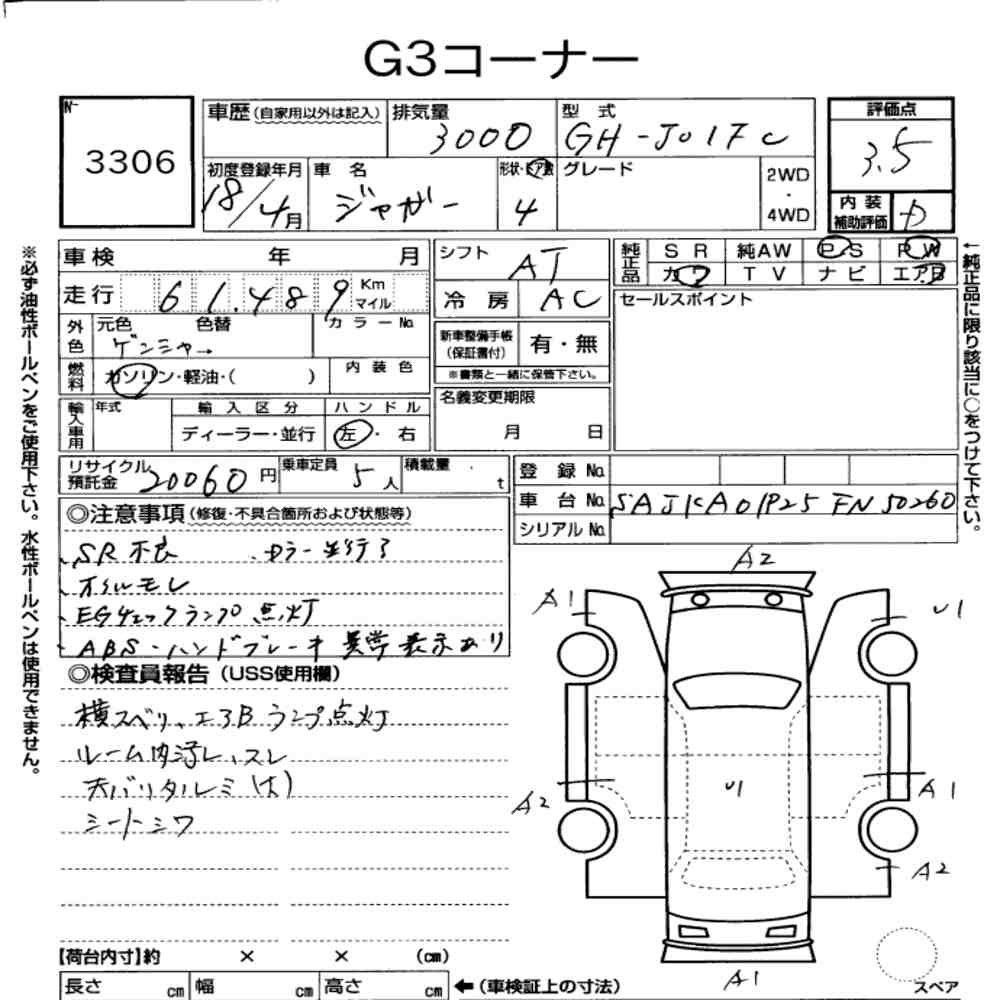 G3コーナー
No
3306
車歴 (自家用以外は記入)
排気量
3000
型 式
GH-J01FC
評価点
3.5
初度登録年月
18/4月
車 名
ジャガー
形状・ドア数
4
グレード
2WD
・
4WD
内 装
補助評価
D
※必ず油性ボールペンをご使用下さい。水性ボールペンは使用できません。
←純正品に限り該当に○をつけて下さい。
車検 年 月
走行 61,489 Km
マイル
シフト
AT
冷 房
AC
純正品
SR 純AW PS PW
カワ TV ナビ エアB
セールスポイント
外色
元色 色替
ゲンシャ→
カラーNo.
新車整備手帳
(保証書付)
有・無
※書類と一緒に保管下さい。
燃料
ガソリン・軽油・( )
内 装 色
輸入車用
年式
輸 入 区 分
ハ ン ド ル
ディーラー・並行
左・右
名義変更期限
月 日
リサイクル
預託金
20060円
乗車定員
5人
積載量
t
登 録 No.
車 台 No.
SAJKA01P25FN50260
シリアル No.
◎注意事項(修復・不具合箇所および状態等)
・SR不良 ・カラー並行了
・オイルモレ
・EGチェックランプ点灯
・ABS・ハンドブレーキ異常表示あり
◎検査員報告(USS使用欄)
横スベリ、エアBランプ点灯
ルーム内汚レ、スレ
天バリタルミ(大)
シートシワ
A2
A1
U1
U1
A2
A1
A2
A1
スペア
【荷台内寸】約 × × (cm)
長さ cm
幅 cm
高さ cm
←(車検証上の寸法)